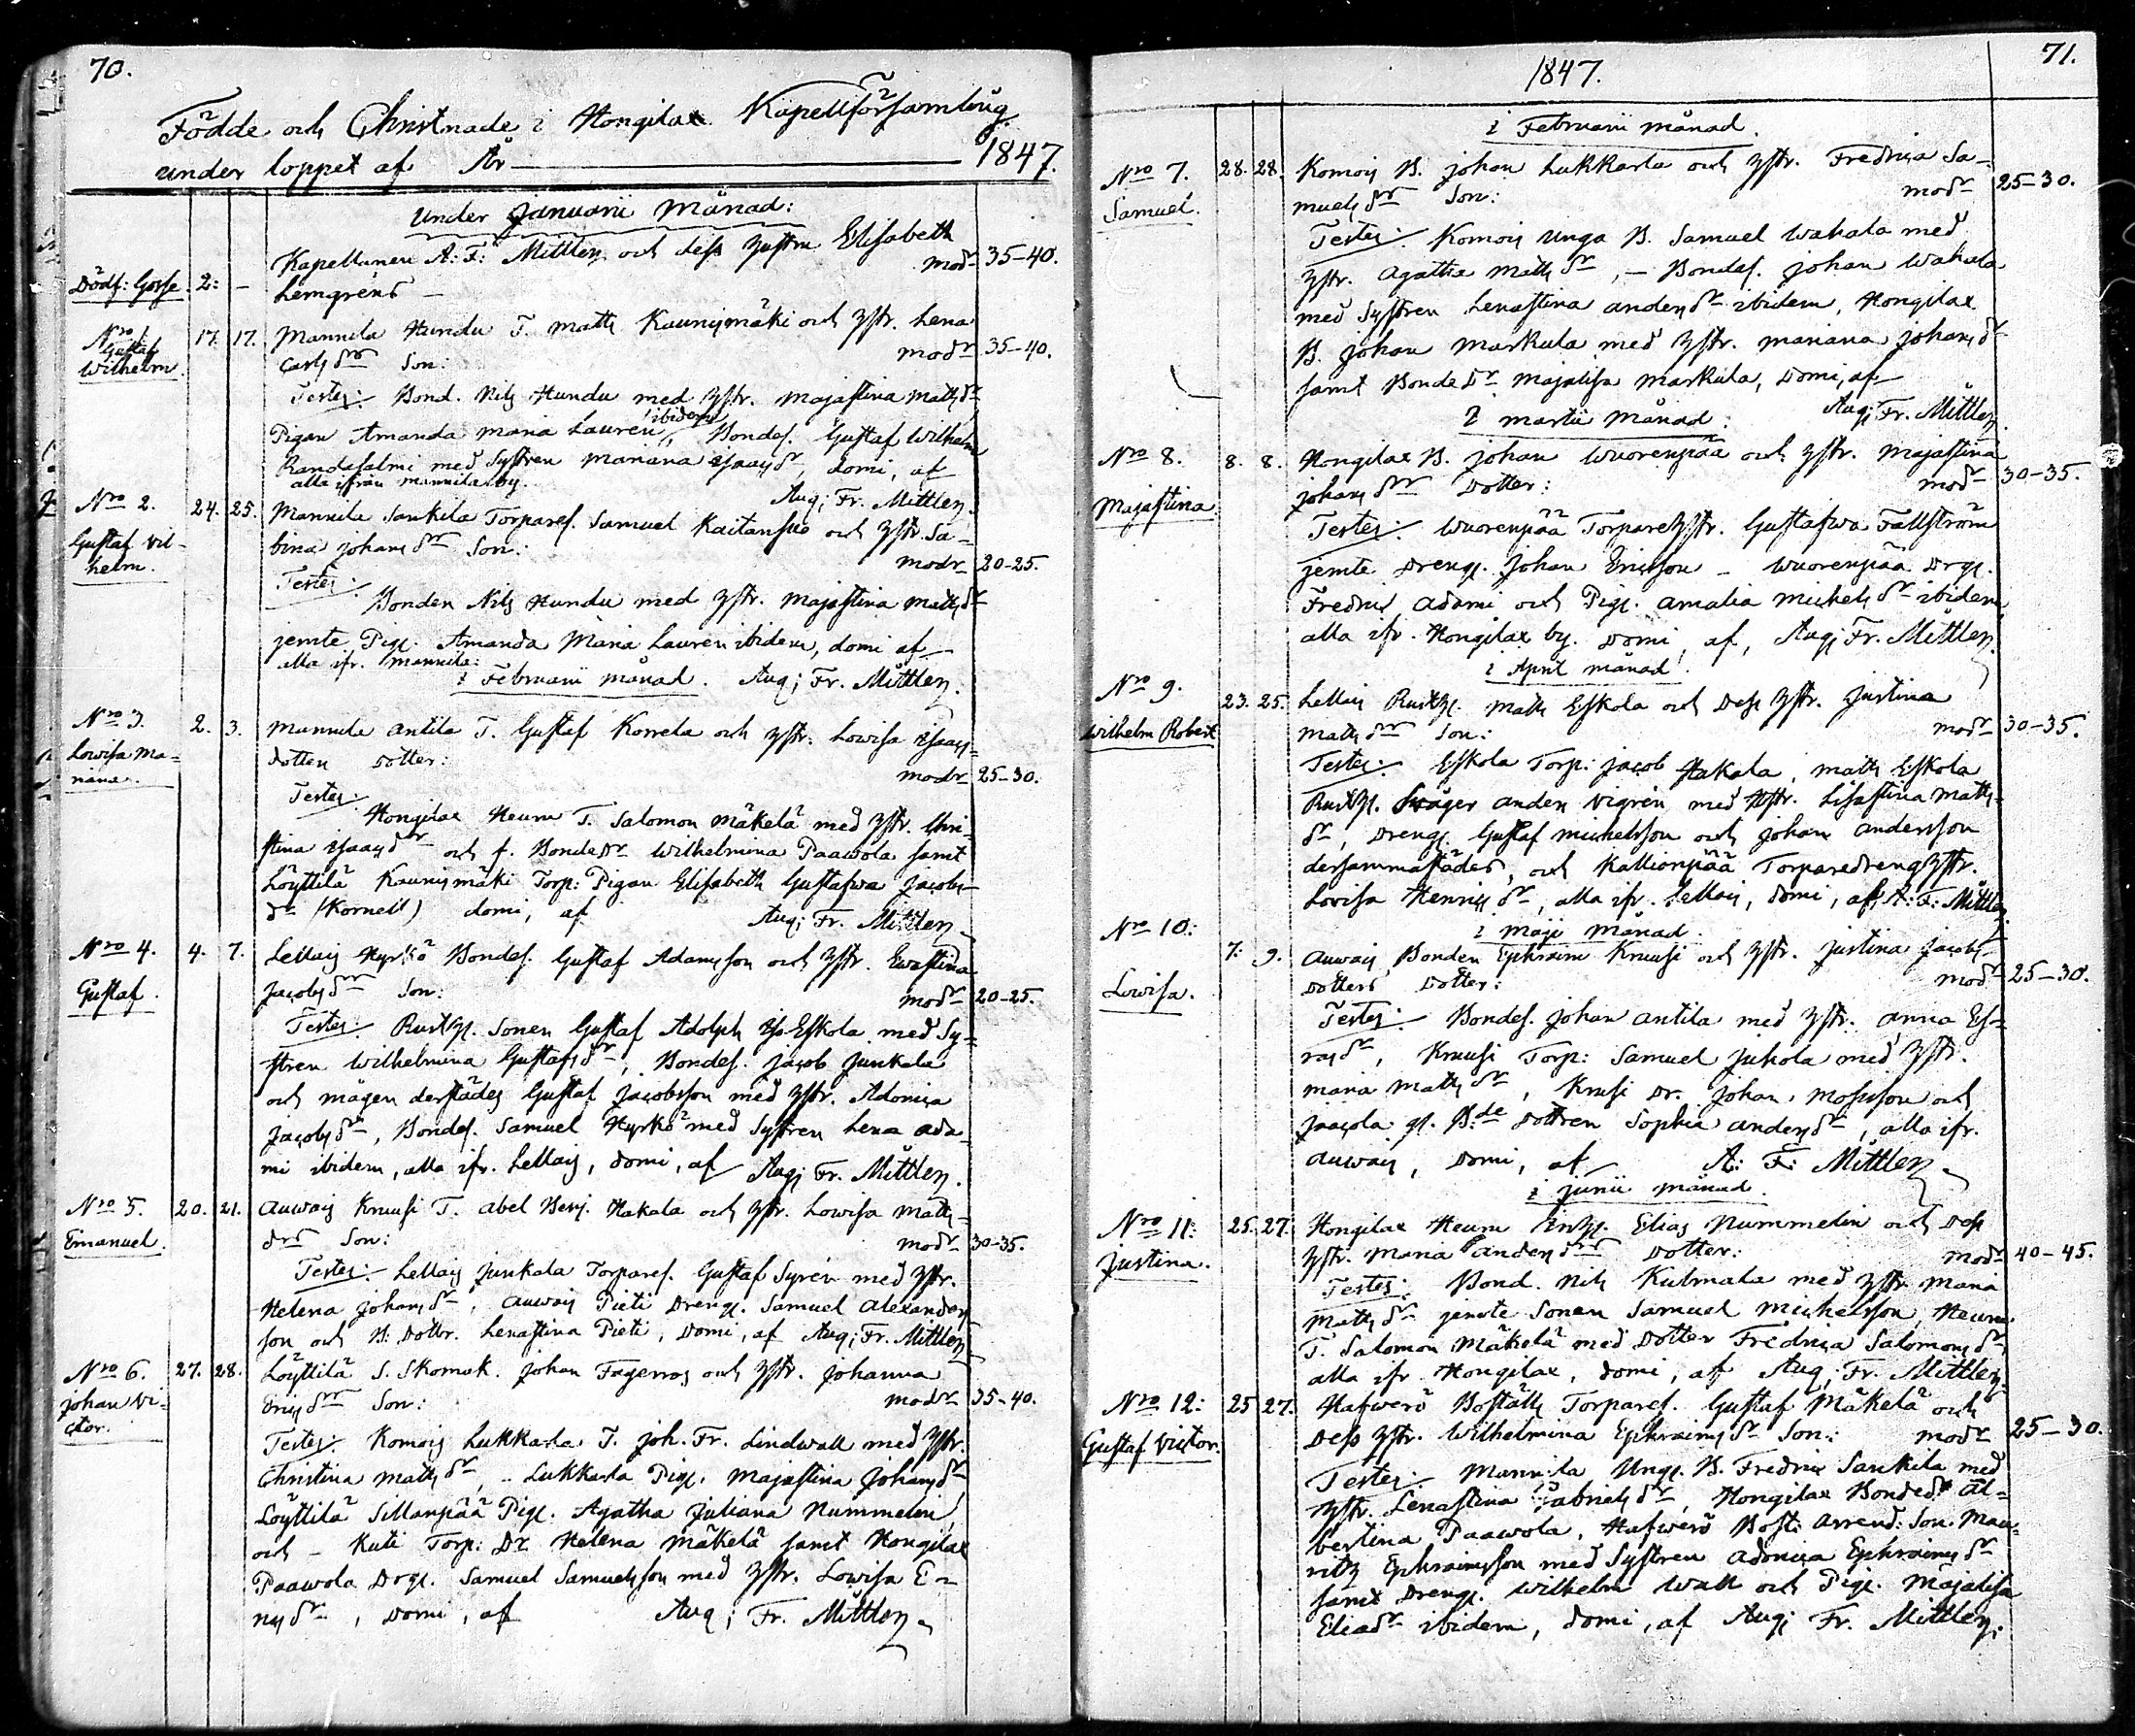 70.
Födde och Christnade i Hongilax Kapellförsamling
under loppet af År 1847.
Under Januarii Månad:
Dödf: Gosse. 2: – Kapellanen A: F: Mittler och dess hustru Elisabeth
Lemgréns – modr 35–40.
Nro 1. Gustaf Wilhelm. 17. 17. Mannila Hundu T. Matts Kaunismäki och hstr. Lena
Carls drs Son: modr 35–40.
Testes: Bond. Nils Hundu med hstr. Majastina Matts dr
Pigan Amanda Maria Lauren ibidem, Bondes. Gustaf Wilhelm
Randasalmi med Systren Mariana Isaacs dr, domi, af
alla ifrån Mannila by. Aug; Fr. Mittler.
Nro 2. 24. 25. Mannila Sankila Torpares. Samuel Kaitansuo och hstr. Sa-
Gustaf Vil-
helm.
bina Johans dr Son: modr 20-25.
Testes:
Bonden Nils Hundu med hstr. Majastina Matts dr
jemte Pig. Amanda Maria Lauren ibidem, domi af
alla ifr. Mannila:
i Februarii månad. Aug; Fr. Mittler.
Nro 3. 2. 3. Mannila Antila T. Gustaf Korrela och hstr. Lowisa Isaacs-
Lowisa Ma-
riana.
dotters dotter: modr 25-30.
Testes:
Hongilax Heuru T. Salomon Mäkelä med hstr. Chri-
stina Isaacs dr och f. Bonde Dr Wilhelmina Paawola samt
Löyttilä Kaunismäki Torp: Pigan Elisabeth Gustafwa Jacobs
dr (Kornell) domi, af Aug; Fr. Mittler
Nro 4. 4. 7. Lellais Hyrkö Bondes. Gustaf Adamsson och hstr. Ewastina
Gustaf.
Jacobs dr Son: modr 20-25.
Testes: Rusth. Sonen Gustaf Adolph Eskola med Sy-
stren Wilhelmina Gustafs dr, Bondes. Jacob Junkala
och mågen derstädes Gustaf Jacobsson med hstr. Adonica
Jacobs dr, Bondes. Samuel Hyrkö med Systren Lena Ada-
mi ibidem, alla ifr. Lellais, domi, af Aug; Fr. Mittler.
Nro 5. 20. 21. Auwais Kruusi T. Abel Benj. Hakala och hstr. Lowisa Matts-
Emanuel.
drs Son: modr 30-35.
Testes: Lellais Junkala Torpares. Gustaf Syrén med hstr.
Helena Johans dr, Auwais Pieti Dreng. Samuel Alexander
son och B: Dottr. Lenastina Pieti, domi, af Aug; Fr. Mittler
Nro 6. 27. 28. Löyttilä S. Skomak. Johan Fagerros och hstr. Johanna
Johan Vi-
ctor.
Erics dr Son: modr 35-40.
Testes: Komois Lukkarla T. Joh. Fr. Lindwall med hstr.
Christina Matts dr, – Lukkarla Pig. Majastina Johans dr
Löyttilä Sillanpää Pig. Agatha Juliana Nummelin
och – Kuti Torp: Dr. Helena Mäkelä samt Hongilax
Paawola Drg. Samuel Samuelsson med hstr. Lowisa E-
rics dr, domi, af Aug; Fr. Mittler
71.
1847.
i Februarii månad.
Nro 7. 28. 28. Komois B. Johan Lukkarla och hstr. Fredrica Sa-
Samuel.
muels dr Son: modr 25–30.
Testes: Komois Unga B. Samuel Wahala med
hstr. Agatha Matts dr, – Bondes. Johan Wahala
med Systren Lenastina Anders dr ibidem, Hongilax
B. Johan Markula med hstr. Mariana Johans dr
samt Bonde Dr Majalisa Markula, domi, af
i Martii månad: Aug; Fr. Mittler
Nro 8. 8. 8. Hongilax B. Johan Wuorenpää och hstr. Majastina
Majastina.
Johans dr Dotter: modr 30-35.
Testes: Wuorenpää Torpare hstr. Gustafwa Fallström
jemte Dreng. Johan Ericsson – Wuorenpää Drg.
Fredric Adami och Pig. Amalia Michels dr ibidem
alla ifr. Hongilax by. domi, af, Aug; Fr. Mittler
i April månad.
Nro 9. 23. 25. Lellais Rusth. Matts Eskola och Dess hstr. Justina
Wilhelm Robert
Matts dr Son: modr 30-35.
Testes: Eskola Torp: Jacob Hakala, Matts Eskola
Rusth. Swåger Anders Vigrén med hstr. Lisastina Matts-
dr, Dreng. Gustaf Michelsson och Johan Andersson
dersammastädes, och Kallionpää Torparedreng hstr.
Lovisa Henrics dr, alla ifr. Lellais, domi, af, A: F: Mittler
Nro 10: i Maji månad.
7. 9. Auwais Bonden Ephraim Kruusi och hstr. Justina Jacobs
Lowisa.
dotters Dotter: modr 25–30.
Testes: Bondes. Johan Antila med hstr. Anna Es-
ras dr, Kruusi Torp: Samuel Juhola med hstr.
Maria Matts dr, Krusi Dr. Johan Mosisson och
Jaacola gl. B.de Dottren Sophia Anders dr, alla ifr.
Auwais, domi, af A: F: Mittler
i Junii månad.
Nro 11: 25. 27. Hongilax Heuru Enkl. Elias Nummelin och Dess
Justina.
hstr. Maria Anders drs Dotter: modr 40–45.
Testes: Bond. Nils Kulmala med hstr. Maria
Matts dr jemte Sonen Samuel Michelsson, Heuru
T. Salomon Mäkelä med Dotter Fredrica Salomons dr
alla ifr Hongilax, domi, af Aug; Fr. Mittler.
Nro 12: 25 27. Hafwerö Boställs Torpares. Gustaf Mäkelä och
Gustaf Victor.
Dess hstr. Wilhelmina Ephraims dr Son: modr 25–30.
Testes: Mannila Ung. B. Fredric Sankila med
hstr. Lenastina Gabriels dr, Hongilax Bonded. Al-
bertina Paawola, Hafwerö Bost: Arrend: Son. Mau-
ritz Ephraimsson med Systren Adonica Ephraims dr
samt Dreng. Wilhelm Wall och Pig. Majalisa
Eliadr ibidem, domi, af Aug; Fr. Mittler.